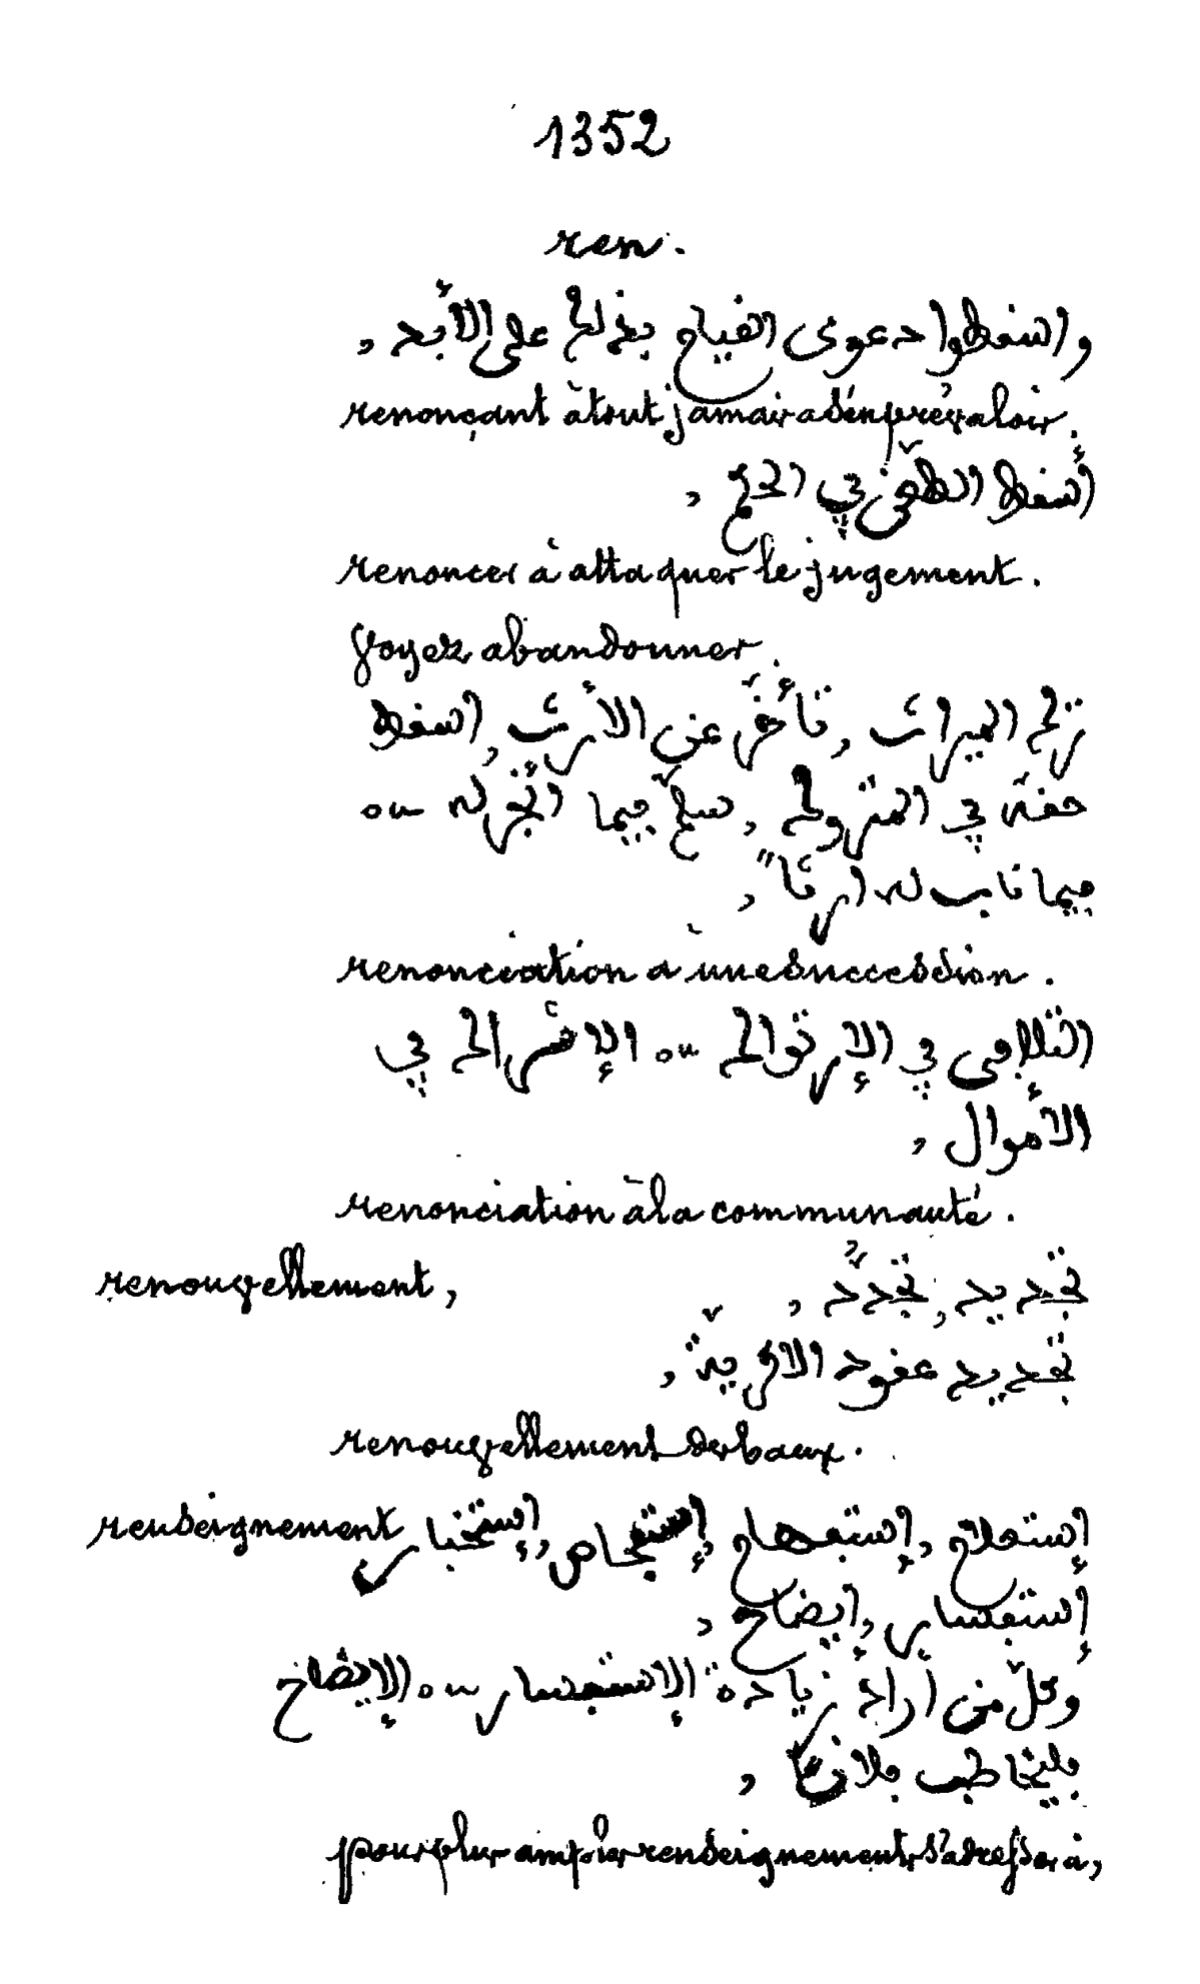 1352
ren.
واسقطوا دعوى القيام بذلك على الأبد,
renonçant à tout jamais à s'en prévaloir.
أسقط الطعن في الحكم,
renoncer à attaquer le jugement.
Voyez abandonner.
ترك الميراث, تأخّر عن الأرث, اسقط
حقّه في المتروك, سلّم فيما انجّر له ou
فيما ناب له ارثا",
renonciation à une succession.
التلافي في الإرتواك ou الإشراك في
الأموال,
renonciation à la communauté.
renouvellement, تجديد, تجدّد,
تجديد عقود الاكريّة,
renouvellement des baux.
renseignement إستعلام, إستفهام, إستفحاص, إستخبار
إستفسار, إيضاح,
وكلّ من اراد زيادة الإستفسار ou الإيضاح
فليخاطب فلانا,
pour plus amples renseignements s'adresser à,